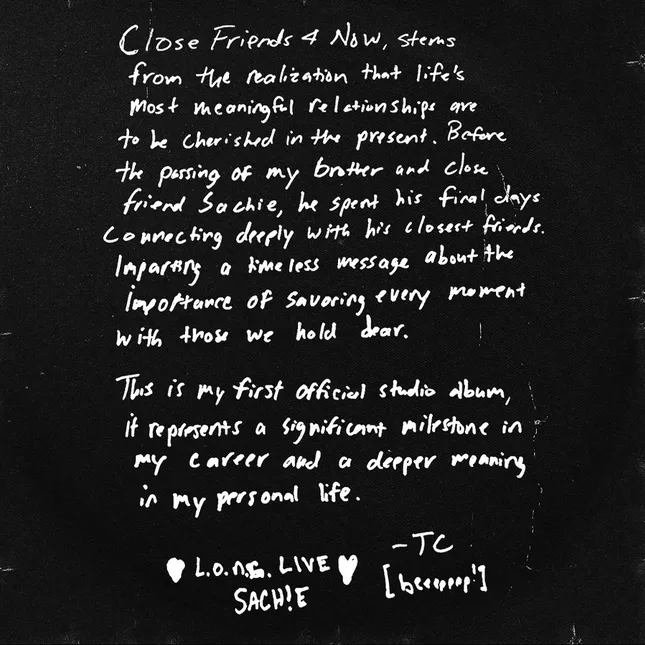 Close Friends 4 Now, stems
from the realization that life's
most meaningful relationships are
to be cherished in the present. Before
the passing of my brother and close
friend Sachie, he spent his final days
Connecting deeply with his closest friends.
Imparting a timeless message about the
importance of savoring every moment
with those we hold dear.
This is my first official studio album,
it represents a significant milestone in
my career and a deeper meaning
in my personal life.
L.O.N.G. LIVE
SACH!E
-TC